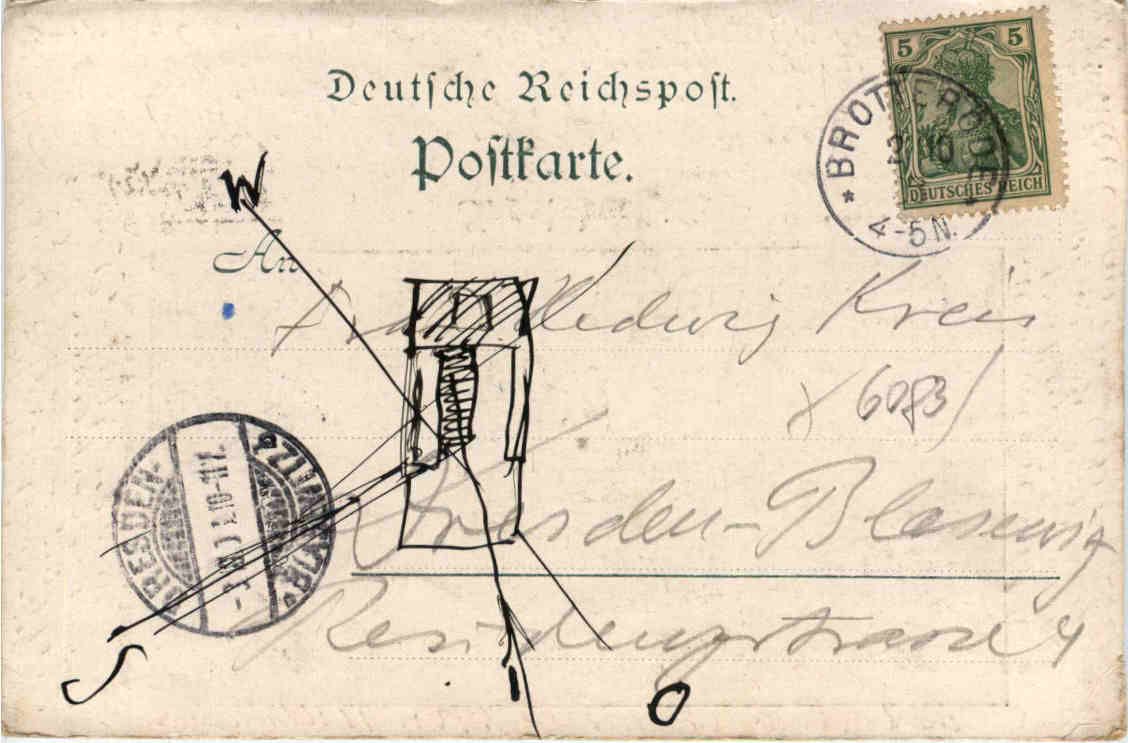 Deutsche Reichspost.
Postkarte.
5 5
DEUTSCHES REICH
* BROTTERODE *
4-5 N.
W
An
Frau Hedwig Kreis
(6083)
Dresden-Blasewitz
Residenzstrasse 4
DRESDEN-
S
O